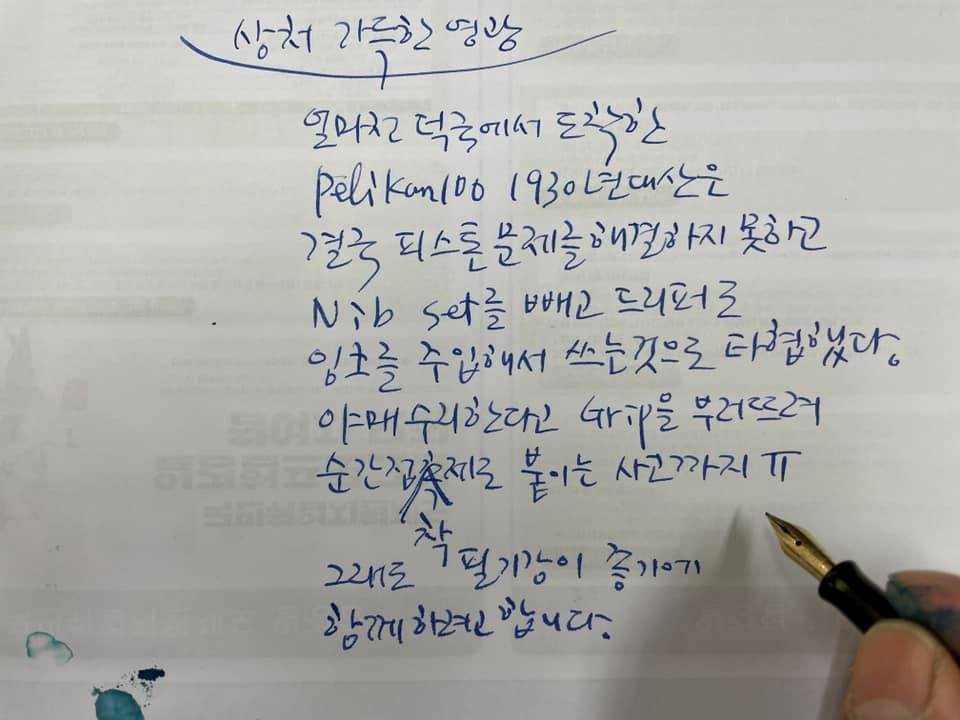 상처 가득한 영광
얼마전 덕국에서 도착한
Pelikan100 1930년대산은
결국 피스톤 문제를 해결하지 못하고
Nib set를 빼고 드리퍼로
잉크를 주입해서 쓰는것으로 타협했다.
야매수리한다고 Grip을 부러뜨려
순간접착제로 붙이는 사고까지 ㅠ
그래도 필기감이 좋기에
함께하려고 합니다.